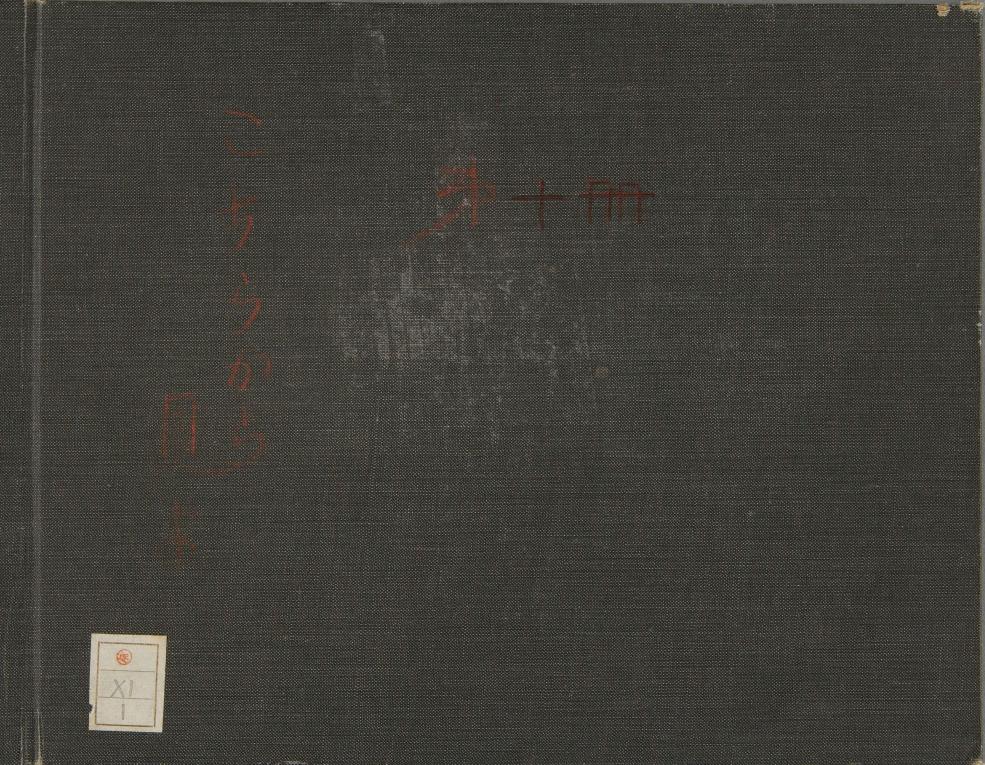 第十冊
こちらから
開く
XI
1